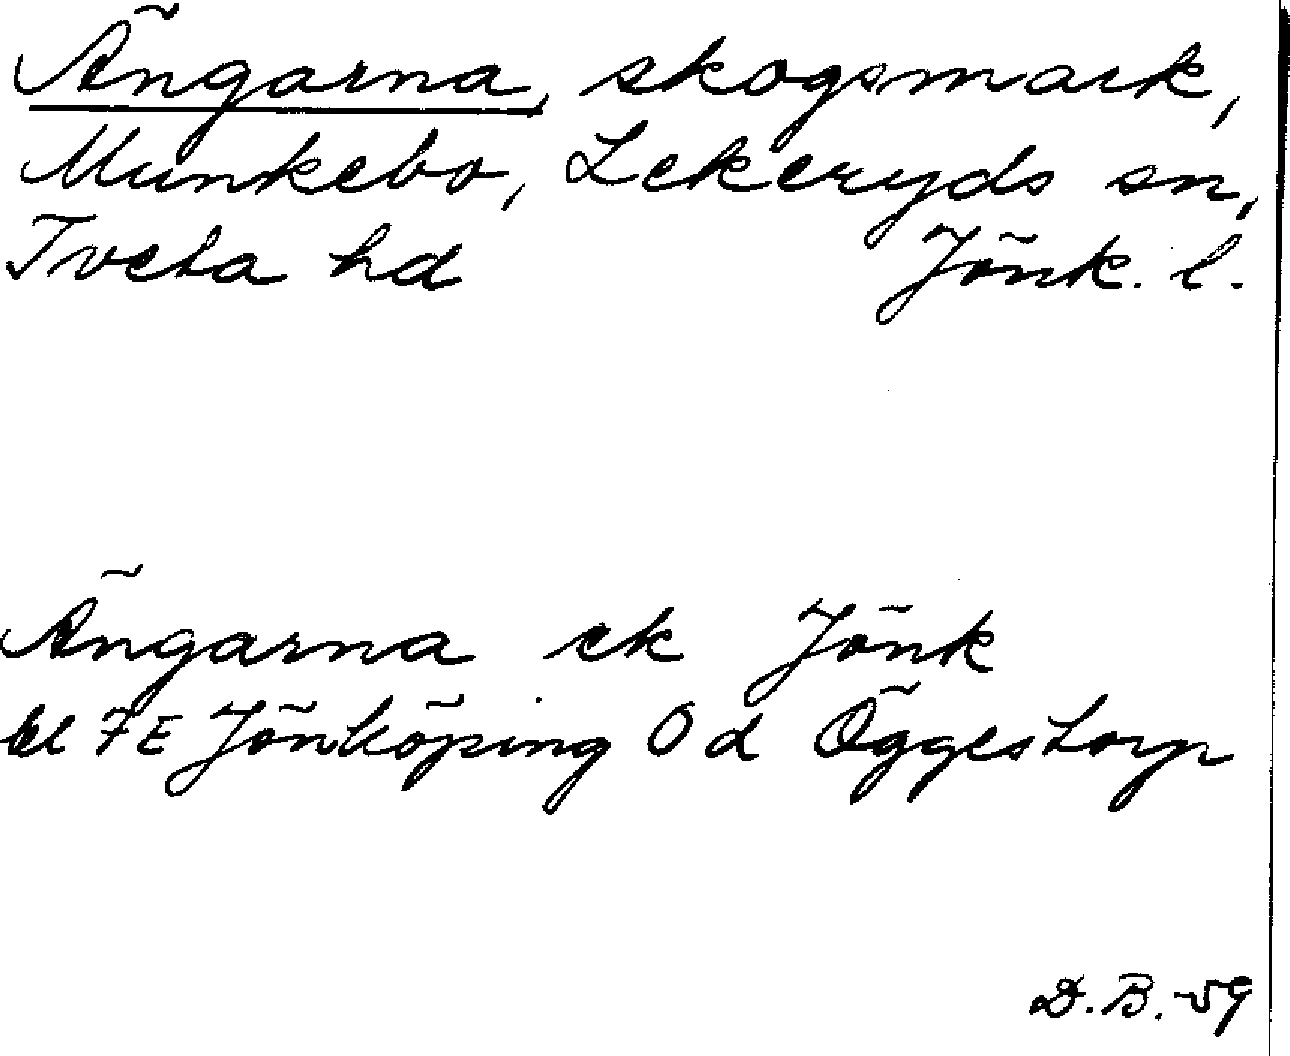 Ängarna, skogsmark,
Munkebo, Lekeryds sn,
Tveta hd Jönk. l.
Ängarna ek Jönk
bl 7E Jönköping Od Öggestorp
D.B.-59